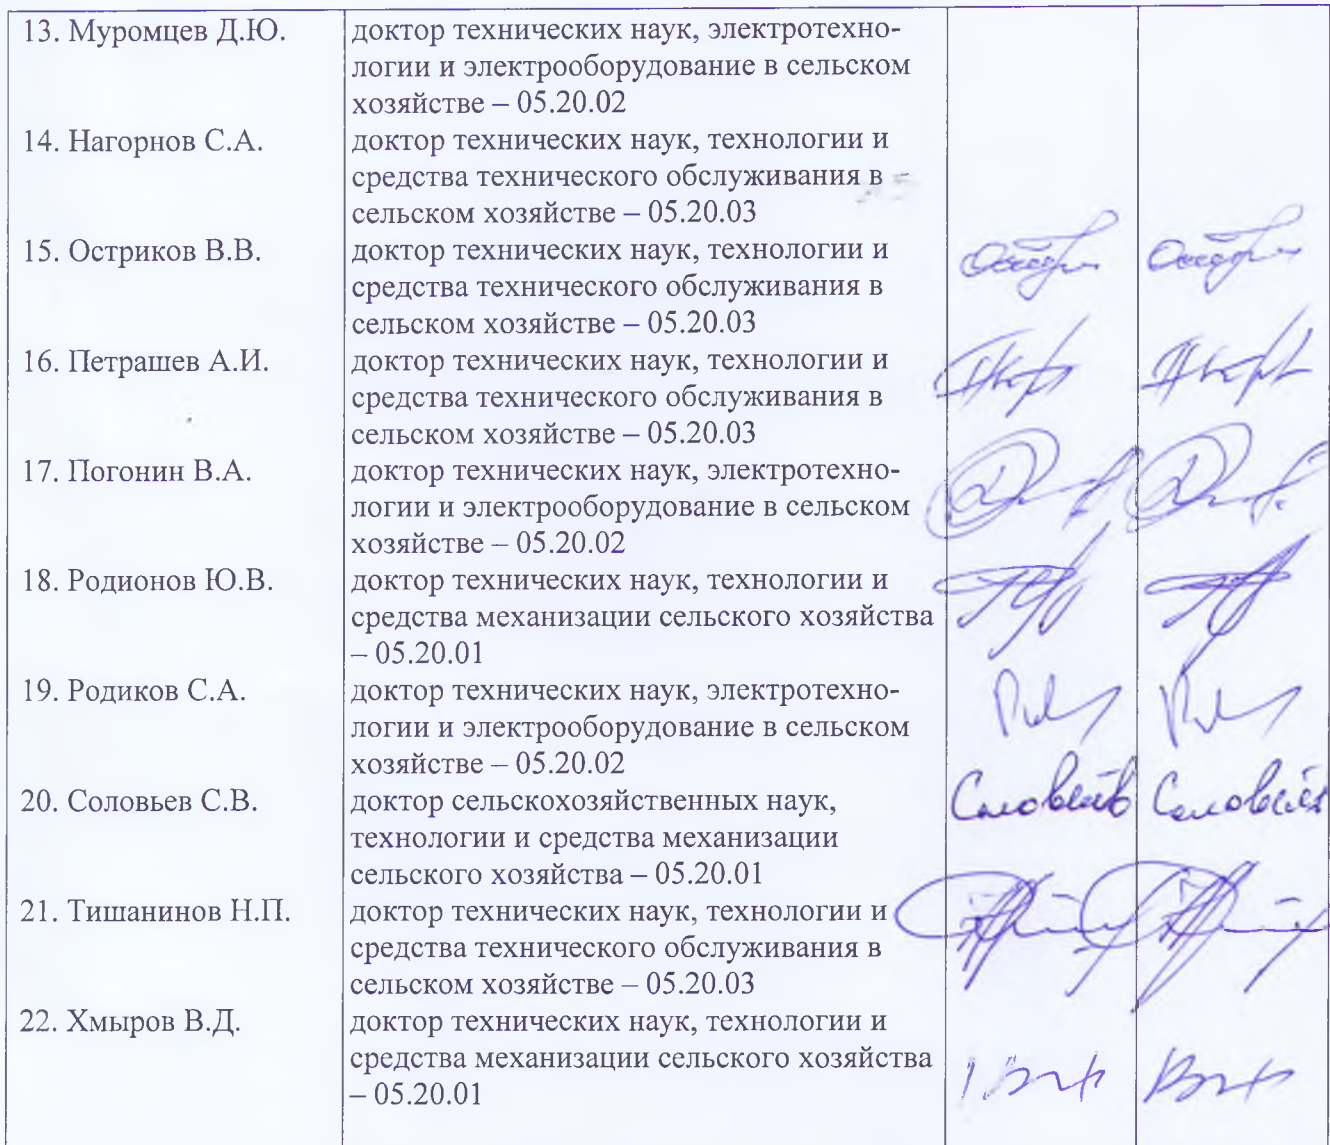 13. Муромцев Д.Ю.
доктор технических наук, электротехно-
логии и электрооборудование в сельском
хозяйстве – 05.20.02
14. Нагорнов С.А.
доктор технических наук, технологии и
средства технического обслуживания в
сельском хозяйстве – 05.20.03
15. Остриков В.В.
доктор технических наук, технологии и
средства технического обслуживания в
сельском хозяйстве – 05.20.03
16. Петрашев А.И.
доктор технических наук, технологии и
средства технического обслуживания в
сельском хозяйстве – 05.20.03
17. Погонин В.А.
доктор технических наук, электротехно-
логии и электрооборудование в сельском
хозяйстве – 05.20.02
18. Родионов Ю.В.
доктор технических наук, технологии и
средства механизации сельского хозяйства
– 05.20.01
19. Родиков С.А.
доктор технических наук, электротехно-
логии и электрооборудование в сельском
хозяйстве – 05.20.02
20. Соловьев С.В.
доктор сельскохозяйственных наук,
технологии и средства механизации
сельского хозяйства – 05.20.01
21. Тишанинов Н.П.
доктор технических наук, технологии и
средства технического обслуживания в
сельском хозяйстве – 05.20.03
22. Хмыров В.Д.
доктор технических наук, технологии и
средства механизации сельского хозяйства
– 05.20.01